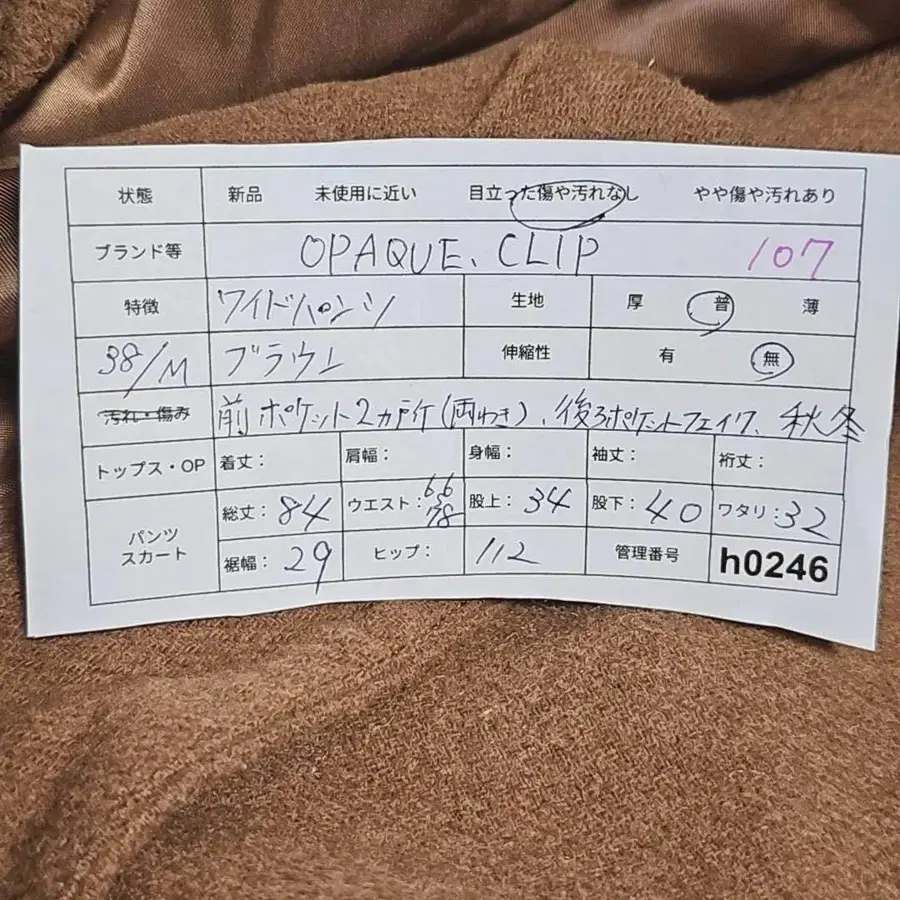 状態 新品 未使用に近い 目立った傷や汚れなし やや傷や汚れあり
ブランド等 OPAQUE、CLIP 107
特徴 ワイドパンツ 生地 厚 普 薄
38/M ブラウン 伸縮性 有 無
汚れ・傷み 前ポケット2カ所(両わき)、後ろポケットフェイク、秋冬
トップス・OP 着丈: 肩幅: 身幅: 袖丈: 裄丈:
パンツ スカート 総丈:84 ウエスト:66 78 股上:34 股下:40 ワタリ:32
裾幅:29 ヒップ: 112 管理番号 h0246